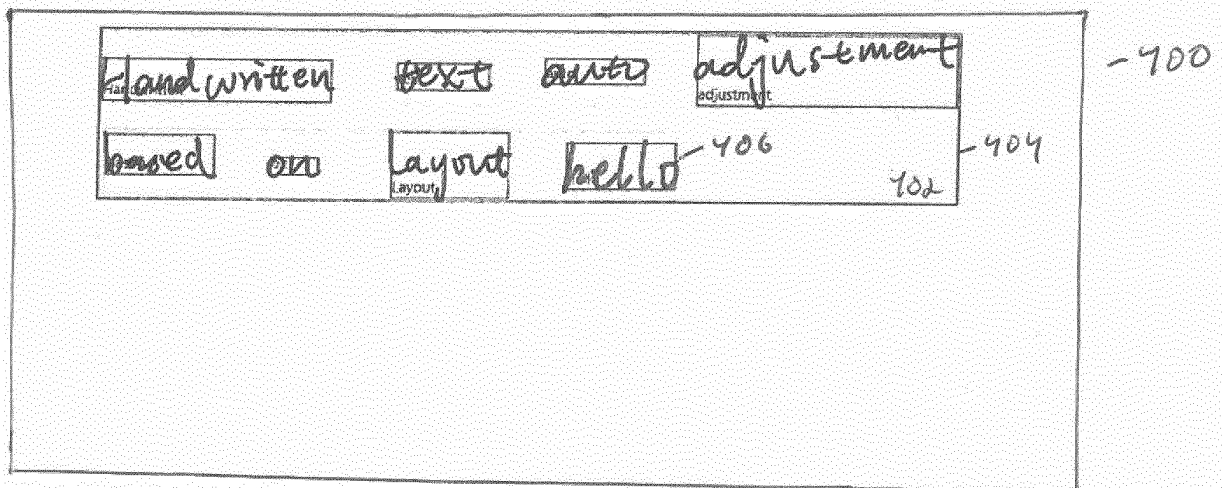 Handwritten text auto adjustment - 400
adjustment
based on Layout hello 406 404
Layout 402